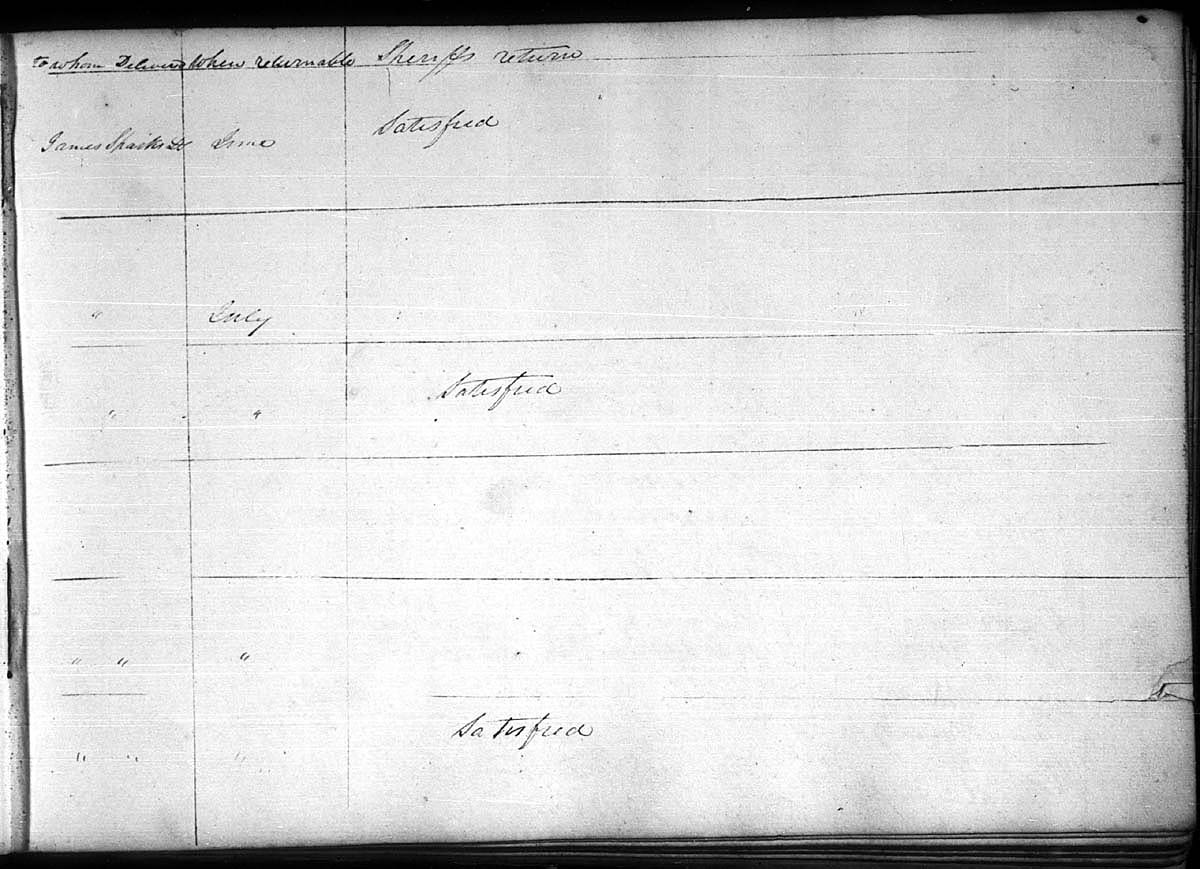 to whom Delivered when returnable Sheriffs return
James Sparks June Satisfied
" July
" " Satisfied
" " "
" " " " Satisfied